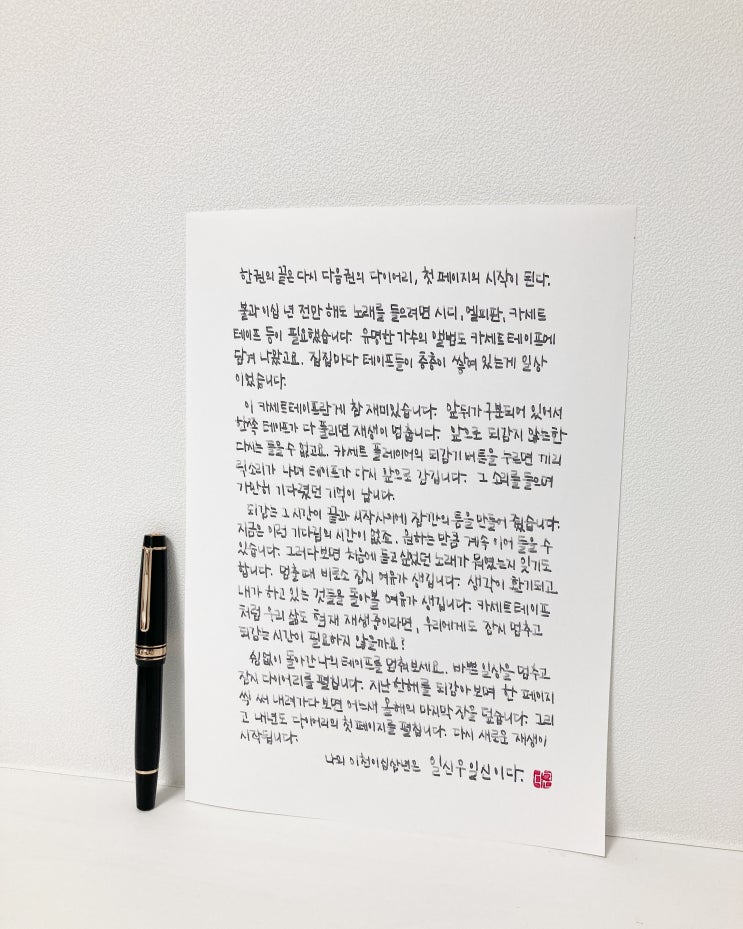 한권의 끝은 다시 다음권의 다이어리, 첫 페이지의 시작이 된다.
불과 이십 년 전만 해도 노래를 들으려면 시디, 엘피판, 카세트
테이프 등이 필요했습니다. 유명한 가수의 앨범도 카세트 테이프에
담겨 나왔고요. 집집마다 테이프들이 층층이 쌓여 있는게 일상
이었습니다.
이 카세트테이프란게 참 재미있습니다. 앞뒤가 구분되어 있어서
한쪽 테이프가 다 풀리면 재생이 멈춥니다. 앞으로 되감지 않는한
다시는 들을 수 없고요. 카세트 플레이어의 되감기 버튼을 누르면 끼리
릭소리가 나며 테이프가 다시 앞으로 감깁니다. 그 소리를 들으며
가만히 기다렸던 기억이 납니다.
되감는 그 시간이 끝과 시작사이에 잠깐의 틈을 만들어 줬습니다.
지금은 이런 기다림의 시간이 없죠. 원하는 만큼 계속 이어 들을 수
있습니다. 그러다보면 처음에 듣고 싶었던 노래가 뭐였는지 잊기도
합니다. 멈출 때 비로소 잠시 여유가 생깁니다. 생각이 환기되고
내가 하고 있는 것들을 돌아볼 여유가 생깁니다. 카세트 테이프
처럼 우리 삶도 현재 재생중이라면, 우리에게도 잠시 멈추고
되감는 시간이 필요하지 않을까요?
쉼없이 돌아간 나의 테이프를 멈춰보세요. 바쁜 일상을 멈추고
잠시 다이어리를 펼칩니다. 지난 한해를 되감아 보며 한 페이지
씩 써 내려가다 보면 어느새 올해의 마지막 장을 덮습니다. 그리
고 내년도 다이어리의 첫 페이지를 펼칩니다. 다시 새로운 재생이
시작됩니다.
나의 이천이십삼년은 일신우일신이다.